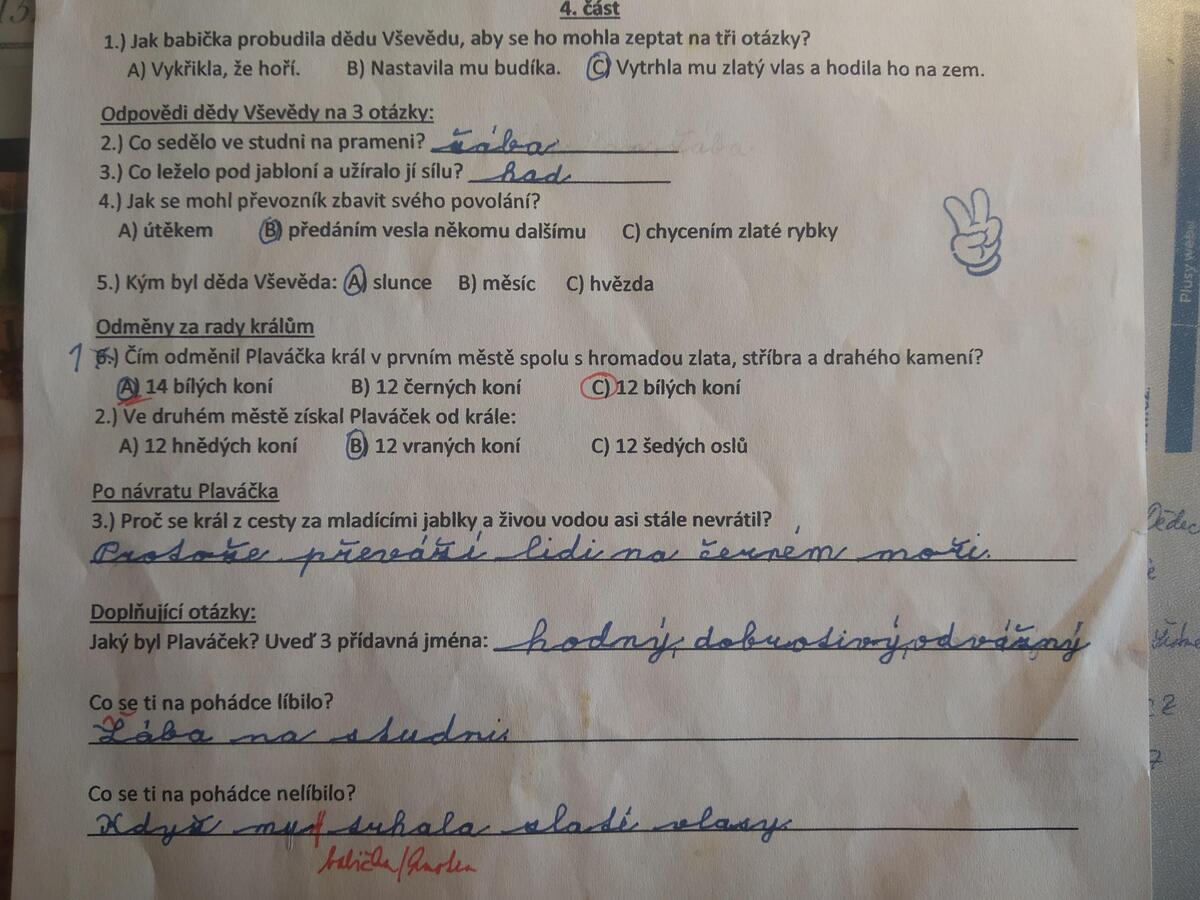 4. část
1.) Jak babička probudila dědu Vševědu, aby se ho mohla zeptat na tři otázky?
A) Vykřikla, že hoří. B) Nastavila mu budíka. C) Vytrhla mu zlatý vlas a hodila ho na zem.
Odpovědi dědy Vševědy na 3 otázky:
2.) Co sedělo ve studni na prameni? žába
3.) Co leželo pod jabloní a užíralo jí sílu? had
4.) Jak se mohl převozník zbavit svého povolání?
A) útěkem B) předáním vesla někomu dalšímu C) chycením zlaté rybky
5.) Kým byl děda Vševěda: A) slunce B) měsíc C) hvězda
Odměny za rady králům
1 6.) Čím odměnil Plaváčka král v prvním městě spolu s hromadou zlata, stříbra a drahého kamení?
A) 14 bílých koní B) 12 černých koní C) 12 bílých koní
2.) Ve druhém městě získal Plaváček od krále:
A) 12 hnědých koní B) 12 vraných koní C) 12 šedých oslů
Po návratu Plaváčka
3.) Proč se král z cesty za mladícími jablky a živou vodou asi stále nevrátil?
Protože převáží lidi na černém moři.
Doplňující otázky:
Jaký byl Plaváček? Uveď 3 přídavná jména: hodný, dobrotivý, odvážný
Co se ti na pohádce líbilo?
Žába na studni.
Co se ti na pohádce nelíbilo?
Když mu trhala zlaté vlasy.
babička/kmotra
Plusy webu
Dědec